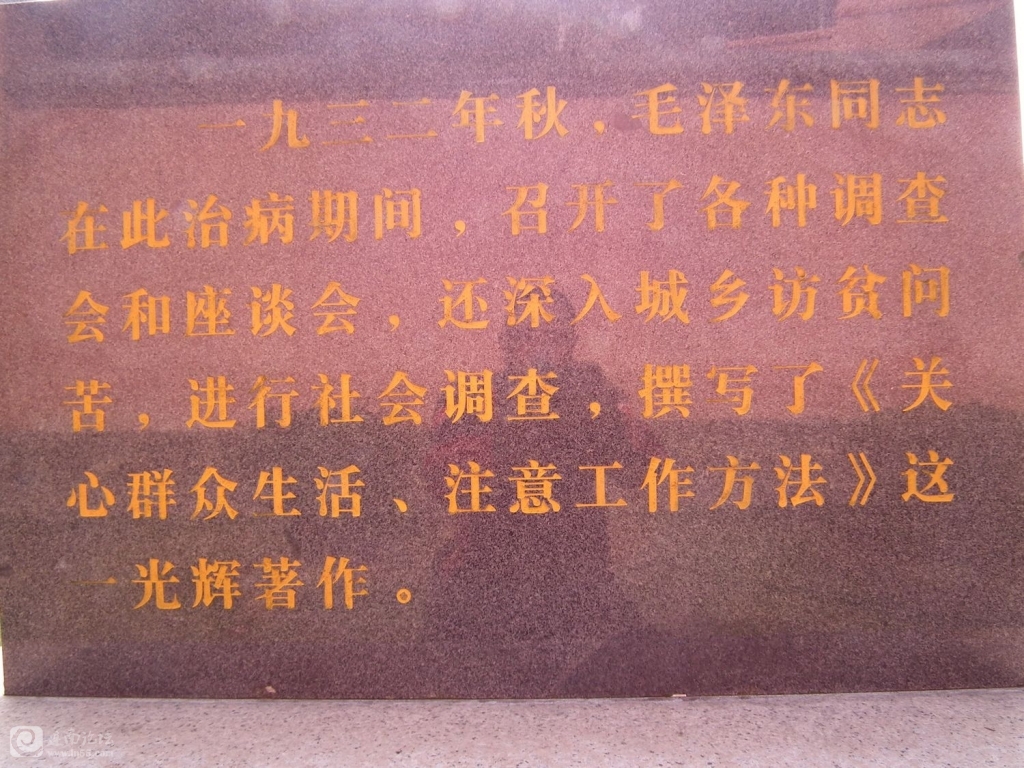 一九三二年秋，毛泽东同志
在此治病期间，召开了各种调查
会和座谈会，还深入城乡访贫问
苦，进行社会调查，撰写了《关
心群众生活、注意工作方法》这
一光辉著作。